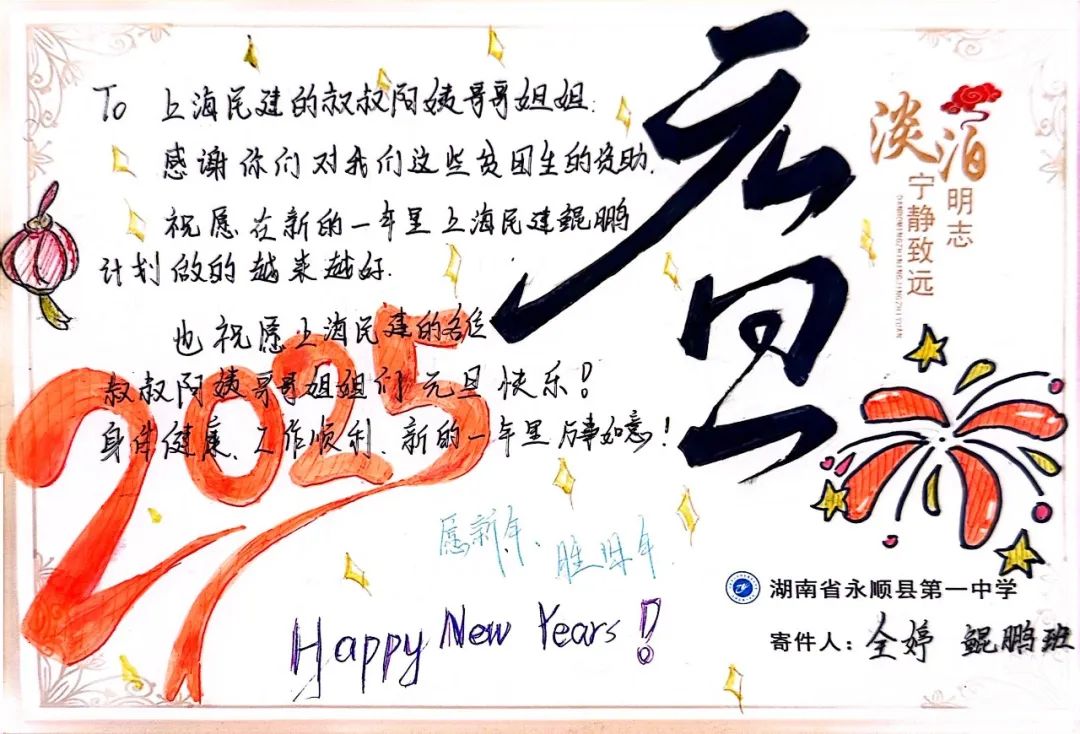 To 上海民建的叔叔阿姨哥哥姐姐:
感谢你们对我们这些贫困生的资助.
祝愿在新的一年里上海民建鲲鹏
计划做的越来越好.
也祝愿上海民建的各位
叔叔阿姨哥哥姐姐们 元旦 快乐!
身体健康、工作顺利、新的一年里万事如意!
2025
愿新年、胜旧年
Happy New Years!
元旦
淡泊
明志
宁静致远
DANBOMINGZHININGJINGZHIYUAN
湖南省永顺县第一中学
寄件人:全婷 鲲鹏班